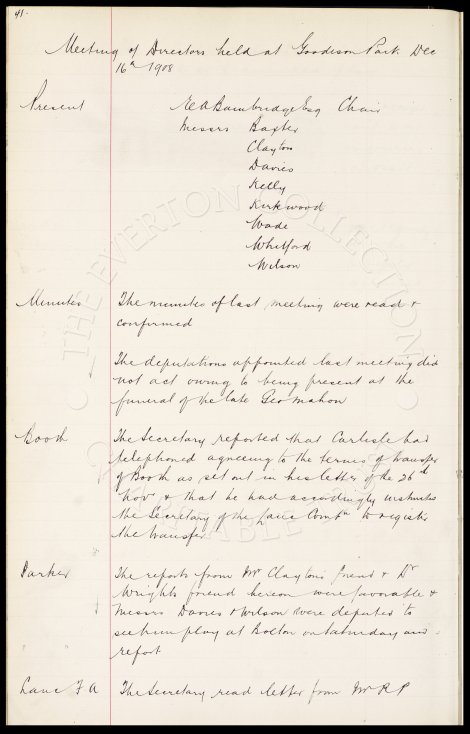 41.
Meeting of Directors held at Goodison Park Dec
16th 1908
Present E A Bainbridge Esq Chair
Messrs Baxter
Clayton
Davies
Kelly
Kirkwood
Wade
Whitford
Wilson
Minutes The minutes of last meeting were read &
confirmed
The deputations appointed last meeting did
not act owing to being present at the
funeral of the late Geo Mahon
Booth The Secretary reported that Carlisle had
telephoned agreeing to the terms of transfer
of Booth as set out in his letter of the 26th
Nov & that he had accordingly instructed
the Secretary of the Lanc Combn to register
the transfer.
Parker The reports from Mr Clayton's friend & Dr
Wright's friend hereon were favorable &
Messrs Davies & Wilson were deputed to
see him play at Bolton on Saturday and
report
Lanc F A The Secretary read letter from Mr R P
THE EVERTON COLLECTION